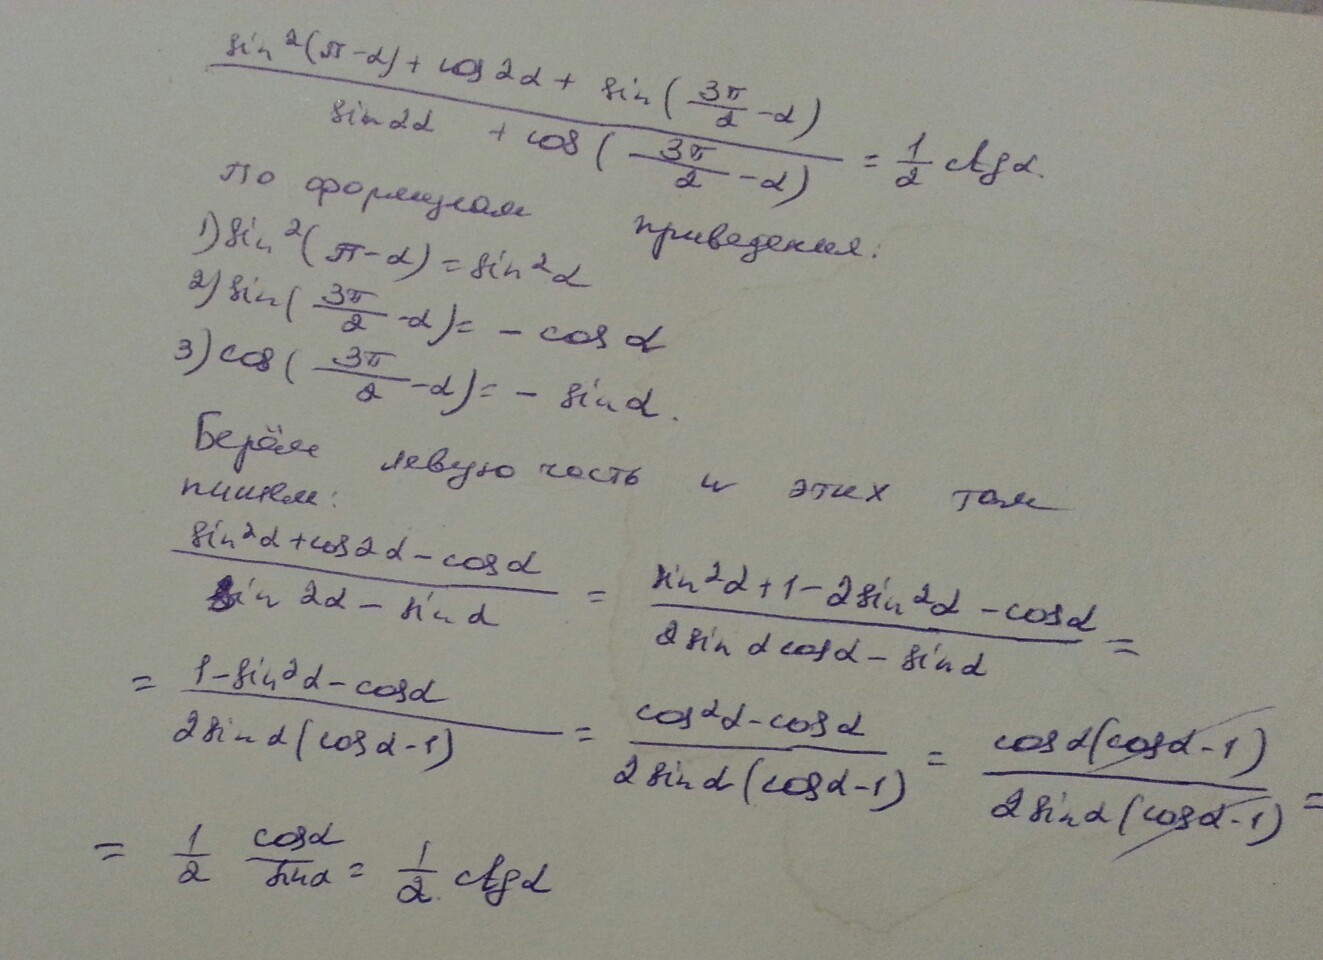 sin²(π-α) + cos 2α + sin(3π/2 - α) / sin 2α + cos(3π/2 - α) = 1/2 ctg α.
По формулам приведения:
1) sin²(π-α) = sin²α
2) sin(3π/2 - α) = - cos α
3) cos(3π/2 - α) = - sin α.
Берём левую часть и этих там
пишем:
sin²α + cos 2α - cos α / sin 2α - sin α = sin²α + 1 - 2sin²α - cos α / 2 sin α cos α - sin α =
= 1 - sin²α - cos α / 2 sin α (cos α - 1) = cos²α - cos α / 2 sin α (cos α - 1) = cos α (cos α - 1) / 2 sin α (cos α - 1) =
= 1/2 cos α / sin α = 1/2 ctg α